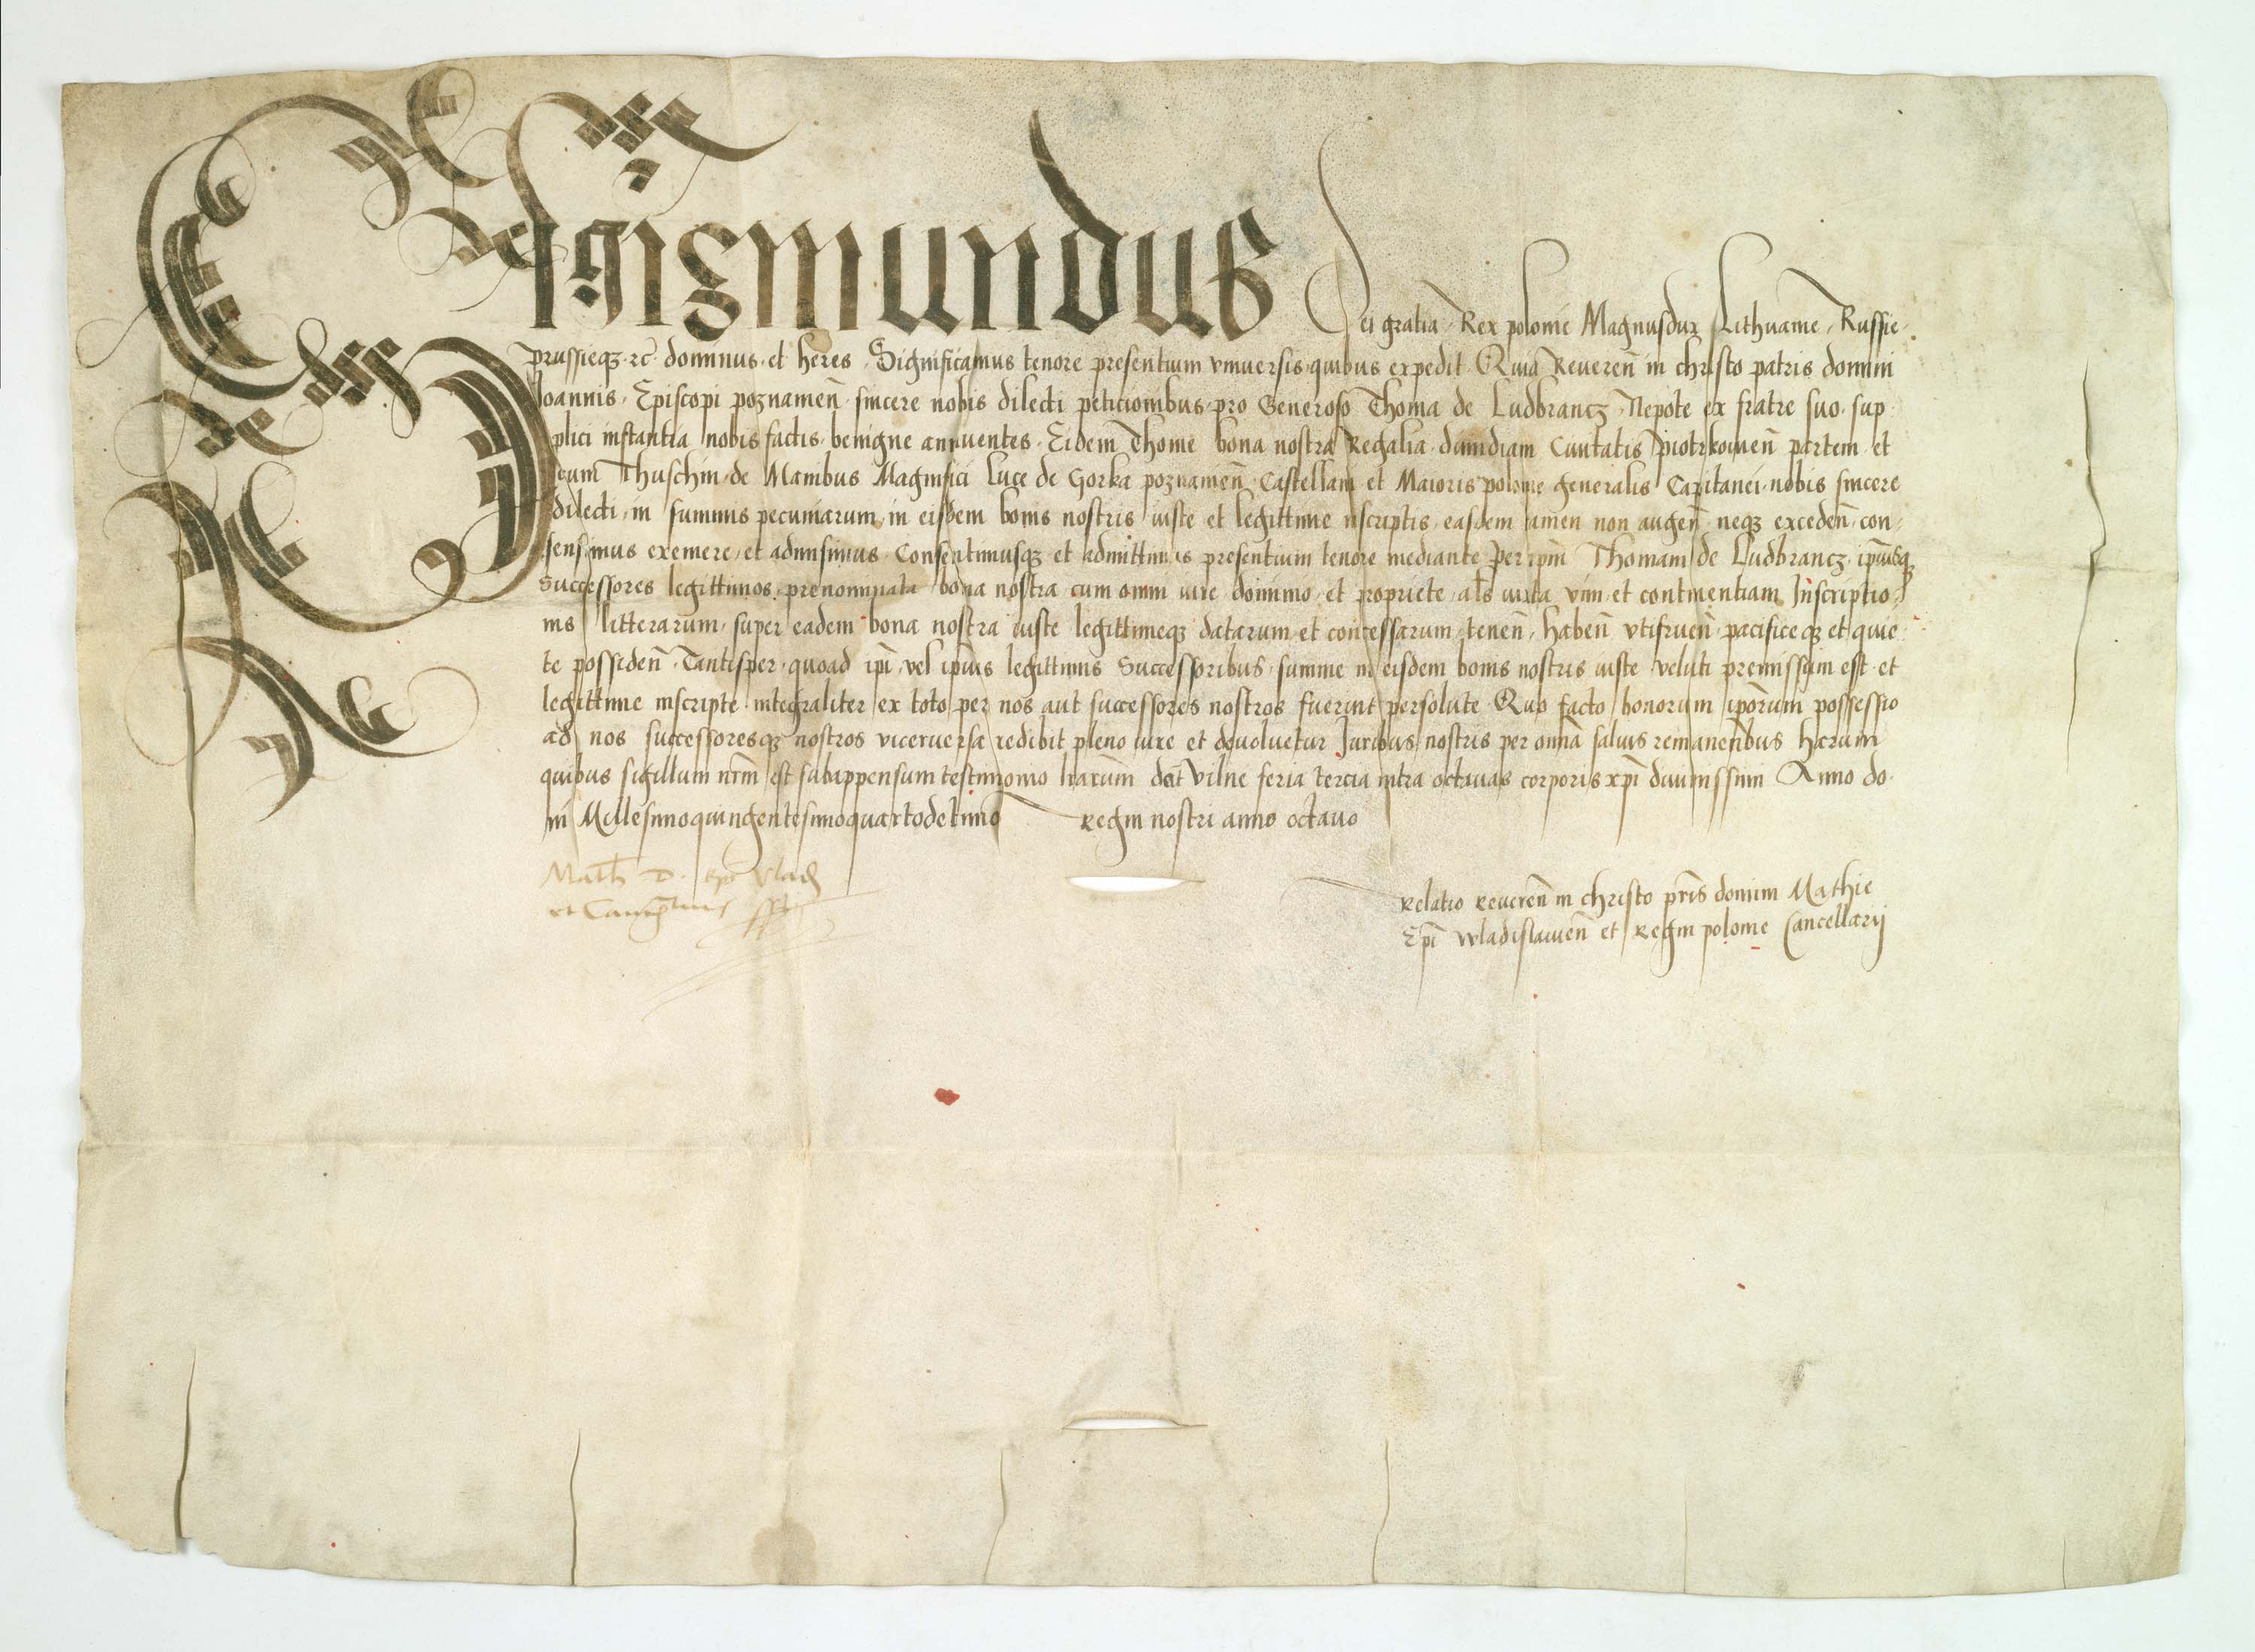 Sigismundus Dei gratia Rex polonie Magnusdux Lithuanie, Russie
prussieqz rc dominus et heres Significamus tenore presentium vniuersis quibus expedit Quia Reueren̄ in christo patris domini
Ioannis Episcopi poznamen̄ sincere nobis dilecti peticionibus pro Generoso Thoma de Ludbrancz Nepote ex fratre suo sup
plici instantia nobis factis benigne annuentes Eidem Thome bona nostra Regalia dimidiam Ciuitatis piotrkouien̄ partem et
cum Thuschin de Manibus Magnifici Luce de Gorka poznanien̄ Castellani et Maioris polonie generalis Capitanei nobis sincere
dilecti in summis pecuniarum in eisdem bonis nostris iuste et legittime inscriptis easdem tamen non augen̄ neqz exceden̄ con
sensimus exemere et admisimus Consentimusqz et admittimus presentium tenore mediante per ip̄m Thomam de Ludbrancz ip̄iusqz
Successores legittimos prenominata bona nostra cum omni iure dominio et propriete al̄s iuxta vim et continentiam Inscriptio
nis litterarum super eadem bona nostra iuste legittimeqz datarum et concessarum tenen̄ haben̄ vtifruen̄ pacificeqz et quie
te possiden̄ Tantisper quoad ip̄i vel ip̄ius legittimis Successoribus summe in eisdem bonis nostris iuste veluti premissum est et
legittime inscripte integraliter ex toto per nos aut successores nostros fuerint persolute Quo facto bonorum ip̄orum possessio
ad nos successoresqz nostros viceuersa redibit pleno iure et deuoluetur Iuribus nostris per om̄ia saluis remanentibus Harum
quibus sigillum nr̄m est subappensum testimonio l̄rarum dat̄ Vilne feria tercia intra octauas corporis xp̄i diuinissimi Anno do
ni Millesimoquingentesimoquartodecimo Regni nostri anno octauo
Relatio Reueren̄ in christo pr̄is domini Mathie
Ep̄i wladislauien̄ et Regni polonie Cancellarij
Math D
et Canc